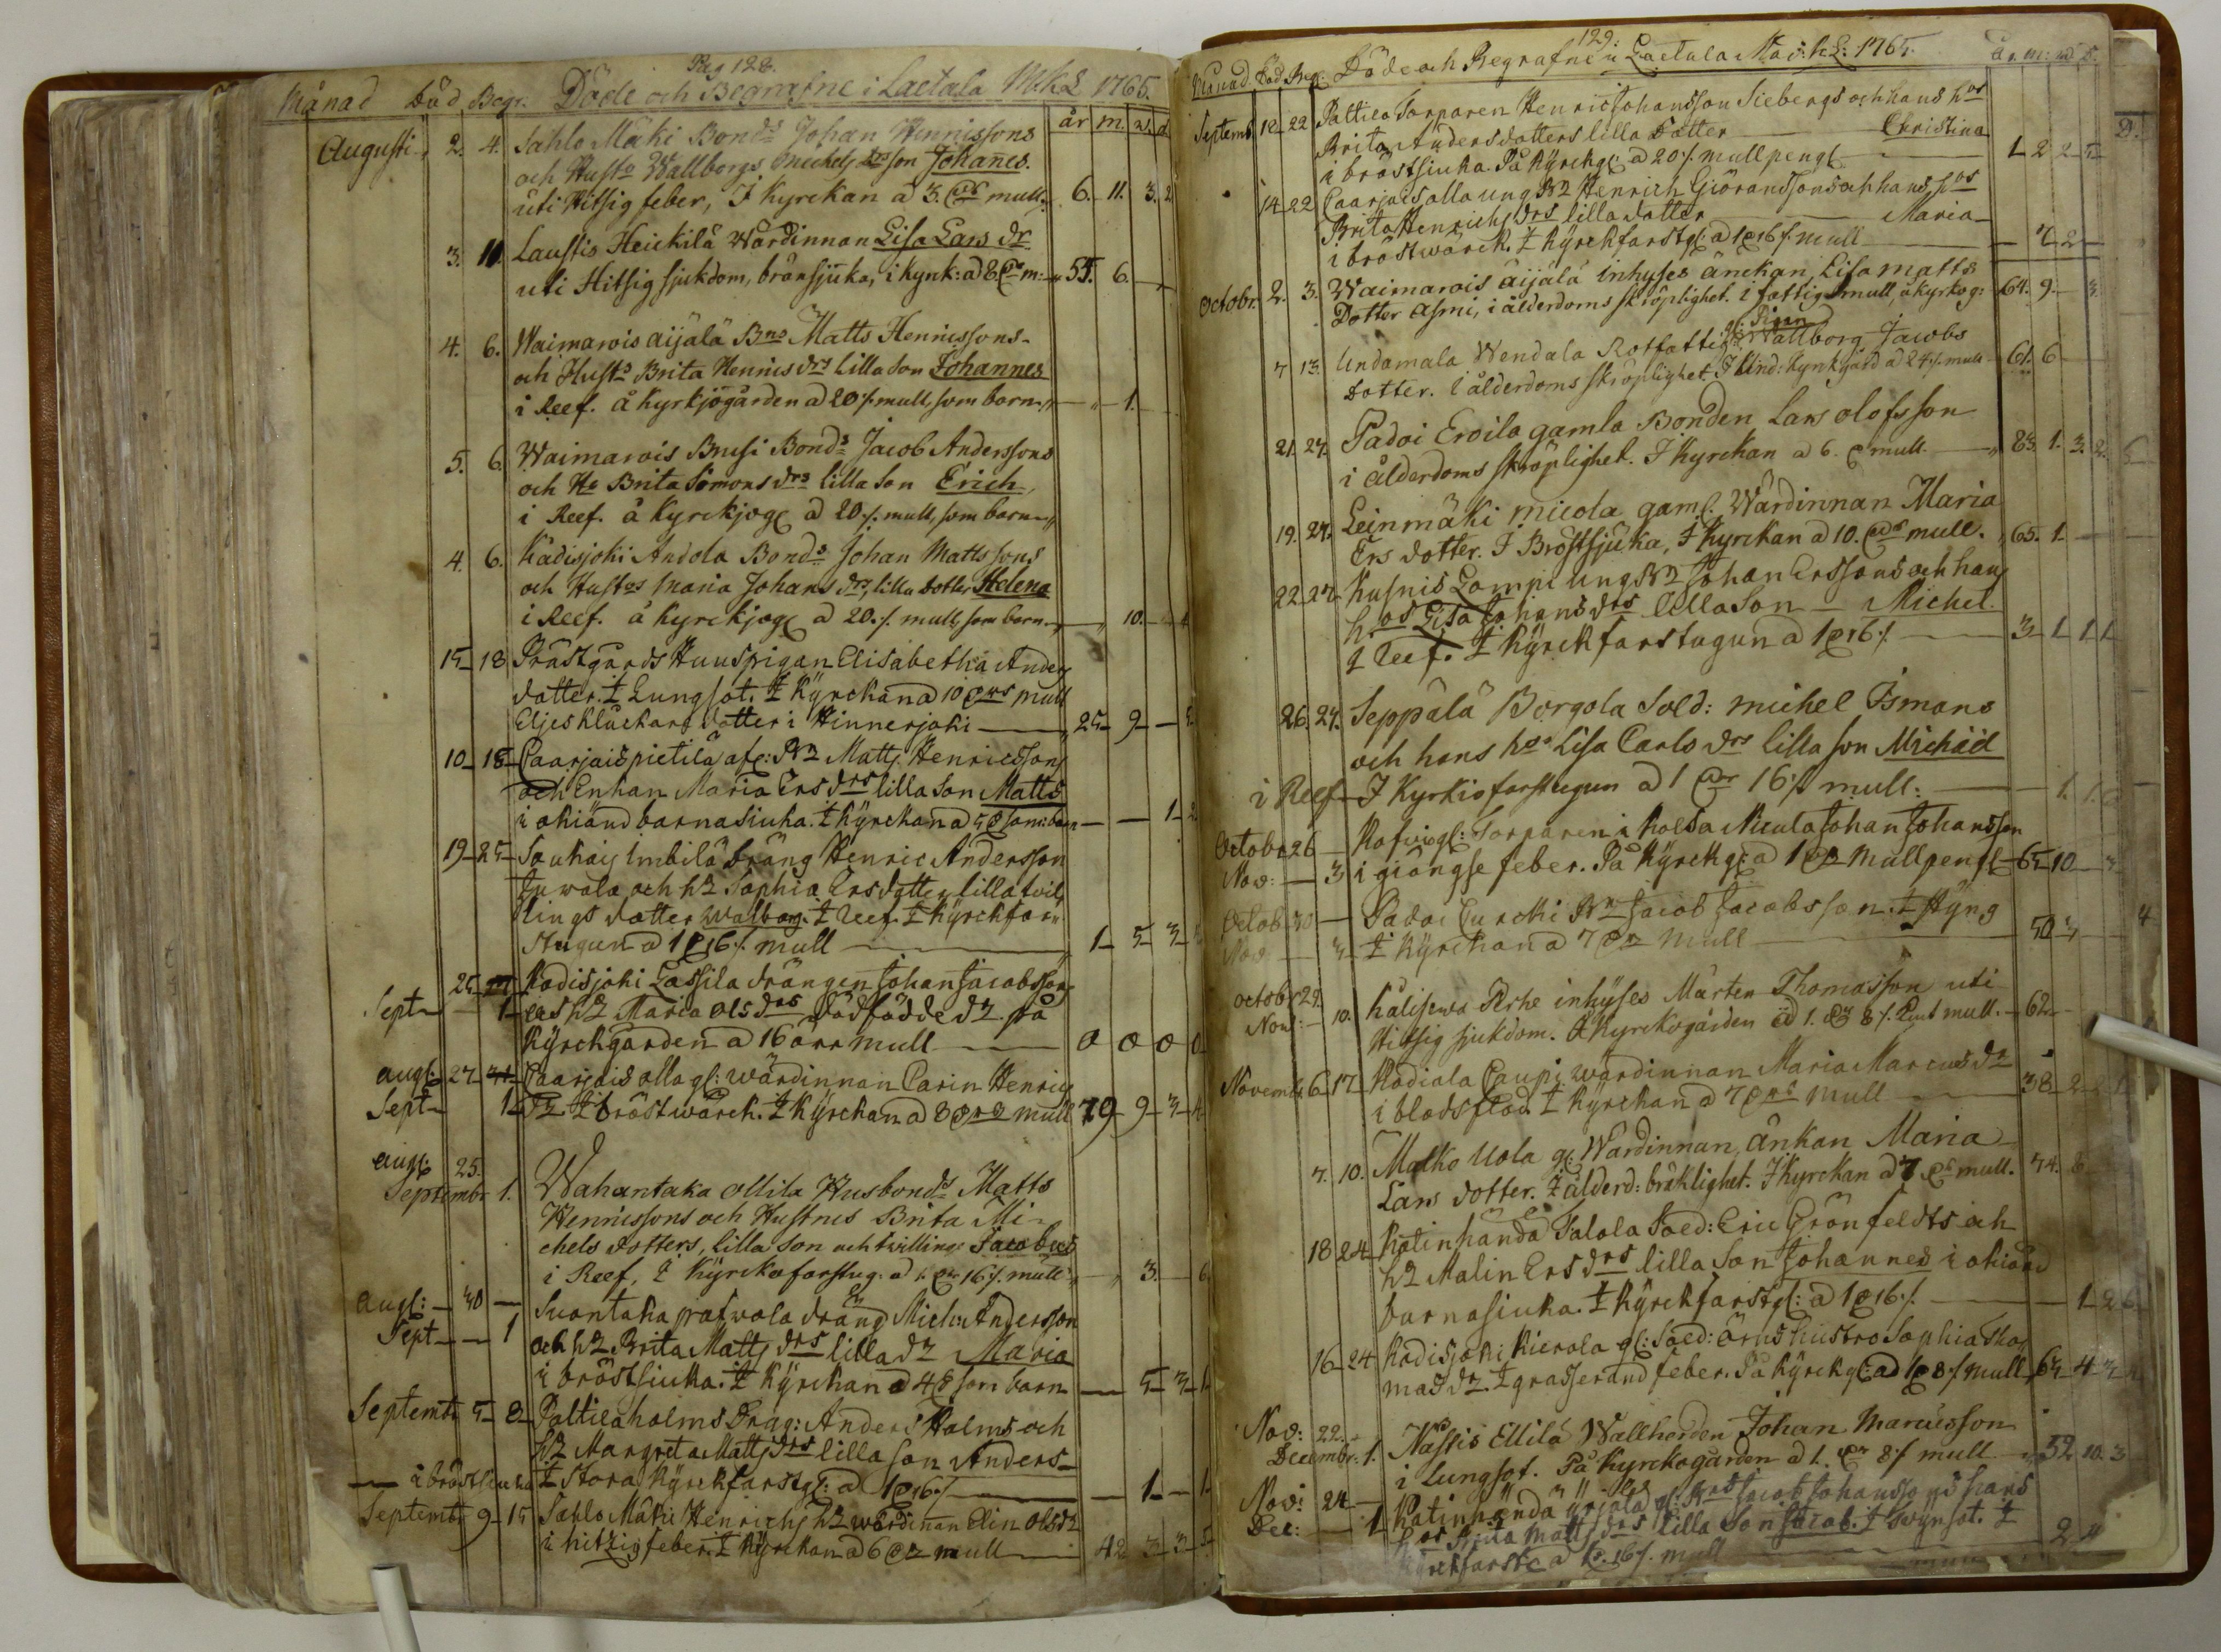 Pag 128.
Månad Död Begr. Döde och Begrafne i Laetala Mk&L 1765.
år m. w. d.
Augusti 2. 4. Sahlo Mäki Bonds Johan Henrissons
och Hust. Wallborgs Michels son Johañes.
uti Hitsig feber, I Kyrckan a 3. mull. 6. 11. 3. 2
3. 11. Laustis Heickilä Wärdinnan Lisa Lars dr
uti Hitsig sjukdom, brånsjuka, i Kyrk: a 8 m: 55. 6.
4. 6. Waimarois äijälä Bns Matts Henrissons
och Hust. Brita Henrics drs lilla Son Johannes
i Reef. å Kyrkjogården a 20 /. mull, som barn 1.
5. 6. Waimarois Brusi Bonds Jacob Anderssons
och Ho Brita Simons drs lilla Son Erich,
i Reef. å Kyrckjog a 20 /. mull, som barn
4. 6. Kådisjoki Andola Bonds Johan Mattssons
och Hustos Maria Johans drs lilla dotter Helena
i Reef. å Kyrckjog a 20 /. mull, som barn 10.
15 18 Prästgårds Huuspigan Elisabetha Anders
dotter. I Lungsot. I Kyrckan a 10 mull
Eljes Kläckars dotter i Hinnerjoki 25 9
10 18 Paarjais pietilä afs: Matts Henricssons
och Enkan Maria Ers drs lilla Son Matts
i okiänd barnasiuka. I Kyrckan a 5 som barn 1 2
19 25 Soukais Imbilä dräng Henric Andersson
och hr Sophia Ersdotters lilla tvil
lings dotter Walborg. I Reef. I Kyrckfor
stugun a 1 16 /. mull 1 5 3
25 Kodisjoki Lassila drängen Johan Jacobssons
Sept 1 hr Maria Ols drs dödfödde dr. på
Kyrckgården a 16 örr mull 0 0 0 0
aug: 27 Paarjais olla gl: wärdinnan Carin Henrics
Sept 1 dr I bröstwärck. I Kyrckan a 8 mull 79 9 3 4
aug: 25.
Septembr 1. Wahantaka Ollila Husbonds Matts
Henrissons och Hustrus Brita Mi-
chels dotters, lilla Son och twilling Jacobus
i Reef, I Kyrckoforstug: a 1. 16 /. mull 3. 6
aug: 30 Suontaka prafwola dräng Mich: Andersson
Sept 1 och hr Brita Matts drs lilla dr Maria
i bröstsiuka. I Kyrckan a 4 som barn 5 3 1
Septemb 5 8 Palttila holms Drag: Anders Holms och
hr Margreta Matts drs lilla son Anders
i bröstsiuka I Stora Kyrckforstg: a 1 16 / 1 1
Septemb 9 15 Sahlo Mäki Henrichs hr wärdinnan Elin Ols dr
i hitzig feber. I Kyrckan a 6 mull 42 3 3 5
129.
Månad Död Begr: Döde och Begrafne i Laetala Mod: k&L: 1765. år m: w d.
Septemb 12 22 Pattila Torparen Henric Johansson Siebergs och hans hos
Brita Andersdotters lilla Dotter Christina
i bröstsiuka. På Kyrckg: a 20 /. mullpengl 1 2 2 5
14 22 Paarjais olla ung Br Henrich Giöranssons och hans hos
Brita Henrichs drs lilla dotter Maria
i bröstwärck. I Kyrckforstg: a 1 16 /. mull 7 2
Octobr. 2. 3. Waimarois äijälä inhyses änckan, Lisa Matts
Dotter Asmi, i ålderdoms skröplighet. i fattig mull å kyrkog: 64. 9. 3.
7 13. Undamala Wendala Rotfattig gl: Pigan Wallborg Jacobs
Dotter. I ålderdoms skröplighet. I Und: Kyrkgård a 24 /. mull 61. 6
21. 27. Padoi Erwila gamla Bonden Lars Olofsson
i ålderdoms skröplighet. I Kyrckan a 6. mull. 83. 1. 3. 2.
19. 27. Leinmäki Micola gaml. Wärdinnan Maria
Ers dotter. I Bröstsjuka, I Kyrckan a 10. mull. 65. 1.
22. 27. Kusnis Lompi ung Br Johan Erssons och hans
hos Lisa Johans drs lilla Son Michel.
I Reef. I Kyrckforstugun a 1 16 / 3 1 1 1
26. 27. Seppälä Borgola Sold: Michel Ismans
och hans hos Lisa Carls drs lilla son Michäel
i Reef I Kyrkioforstugun a 1 16 / mull: 1. 1.
Octobr 26 gl: Torparen i Kolsa Nicula Johan Johansson
Nov: 3 i giängse feber. På Kyrckg: a 1 mullpengl 65 10 3
Octob 30 Padoi Br Jacob Jacobsson. I Styng
Nov 3 I Kyrckan a 7 mull 50 3
Octobr 29.
Nov: 10. Kälisewa Perhe inhyses Mårten Thomasson uti
Hitsig sjukdom. å Kyrckogården a 1. 8 /. mull. 62
Novemb. 6 17 Kodiala Caupi wärdinnan Maria Marcus dr
i blodsflod. I Kyrckan a 7 mull 38 2 2 1
7. 10. Malko Uola gl: Wärdinnan, änkan Maria
Lars dotter. I ålderd: bräklighet. I Kyrckan a 7 mull. 74. 8
18 24 Katinhända Talola Soed: Eric Grönfeldts och
hr Malin Ers drs lilla Son Johannes i okiänd
barnasiuka. I Kyrckforstgl: a 1 16 /. 1 2 6
16 24 Kodisjoki Kierola gl: Soed: hustro Sophia Tho
mas dr. I grasserand feber. På Kyrckg: a 1 8 / mull 63 4 3
Nov: 22.
Decembr. 1. Nästis Ellilä Wallherden Johan Marcusson
i Lungsot. På Kyrckogården a 1. 8 / mull 52 10. 3
Nov: 24
Dec: 1 Katinhända yrjälä gl: Jacob Johanssons hans
hos Brita Matts drs lilla Son Jacob. I Swynsot. I
Kyrckforst a 1. 16 /. mull 2